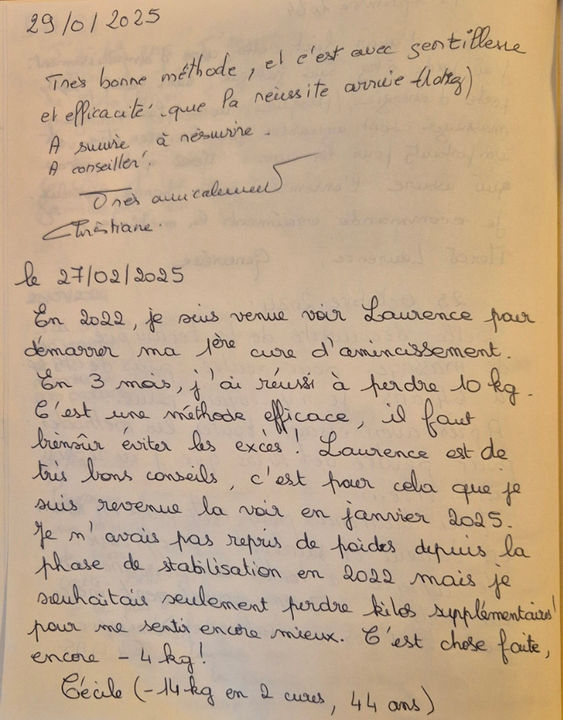 29/01/2025
Très bonne méthode, et c'est avec gentillesse
et efficacité que la réussite arrive (10kg)
A suivre, à résuivre.
A conseiller.
Très amicalement
Christiane.
le 27/02/2025
En 2022, je suis venue voir Laurence pour
démarrer ma 1ère cure d'amincissement.
En 3 mois, j'ai réussi à perdre 10 kg.
C'est une méthode efficace, il faut
biensûr éviter les excès ! Laurence est de
très bons conseils, c'est pour cela que je
suis revenue la voir en janvier 2025.
Je n'avais pas repris de poids depuis la
phase de stabilisation en 2022 mais je
souhaitais seulement perdre kilos supplémentaires
pour me sentir encore mieux. C'est chose faite,
encore - 4 kg !
Cécile (-14 kg en 2 cures, 44 ans)